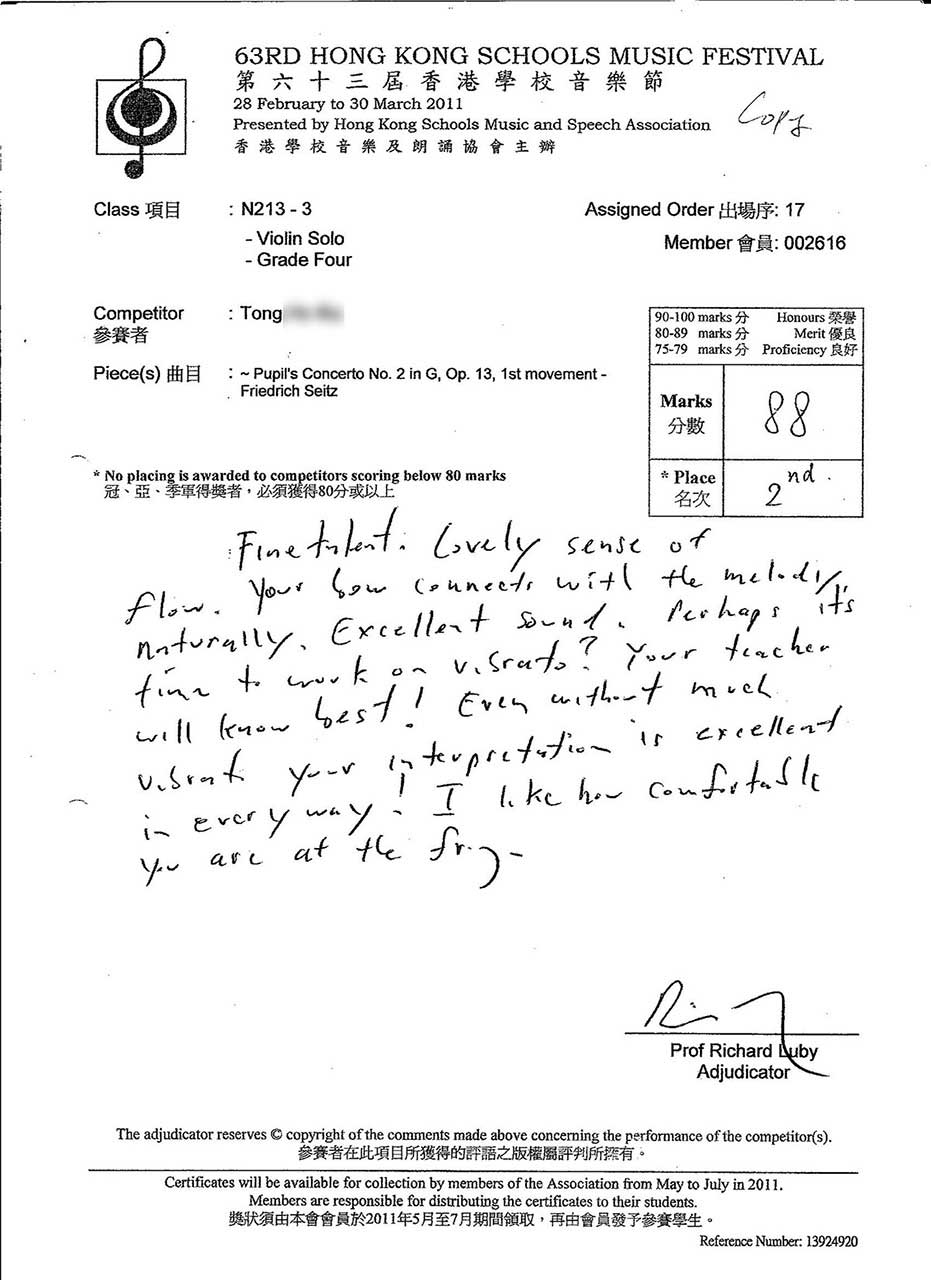 63RD HONG KONG SCHOOLS MUSIC FESTIVAL
第六十三屆香港學校音樂節
28 February to 30 March 2011
Presented by Hong Kong Schools Music and Speech Association
香港學校音樂及朗誦協會主辦
Copy
Class 項目 : N213 - 3
- Violin Solo
- Grade Four
Assigned Order 出場序: 17
Member 會員: 002616
Competitor : Tong
參賽者
Piece(s) 曲目 : ~ Pupil's Concerto No. 2 in G, Op. 13, 1st movement -
Friedrich Seitz
90-100 marks 分 Honours 榮譽
80-89 marks 分 Merit 優良
75-79 marks 分 Proficiency 良好
Marks 88
分數
* Place 2nd.
名次
* No placing is awarded to competitors scoring below 80 marks
冠、亞、季軍得獎者，必須獲得80分或以上
Fine talent. Lovely sense of
flow. Your bow connects with the melody
naturally. Excellent sound. Perhaps it's
time to work on vibrato? Your teacher
will know best! Even without much
vibrato your interpretation is excellent
in every way! I like how comfortable
you are at the
Prof Richard Luby
Adjudicator
The adjudicator reserves © copyright of the comments made above concerning the performance of the competitor(s).
參賽者在此項目所獲得的評語之版權屬評判所擁有。
Certificates will be available for collection by members of the Association from May to July in 2011.
Members are responsible for distributing the certificates to their students.
獎狀須由本會會員於2011年5月至7月期間領取，再由會員發予參賽學生。
Reference Number: 13924920